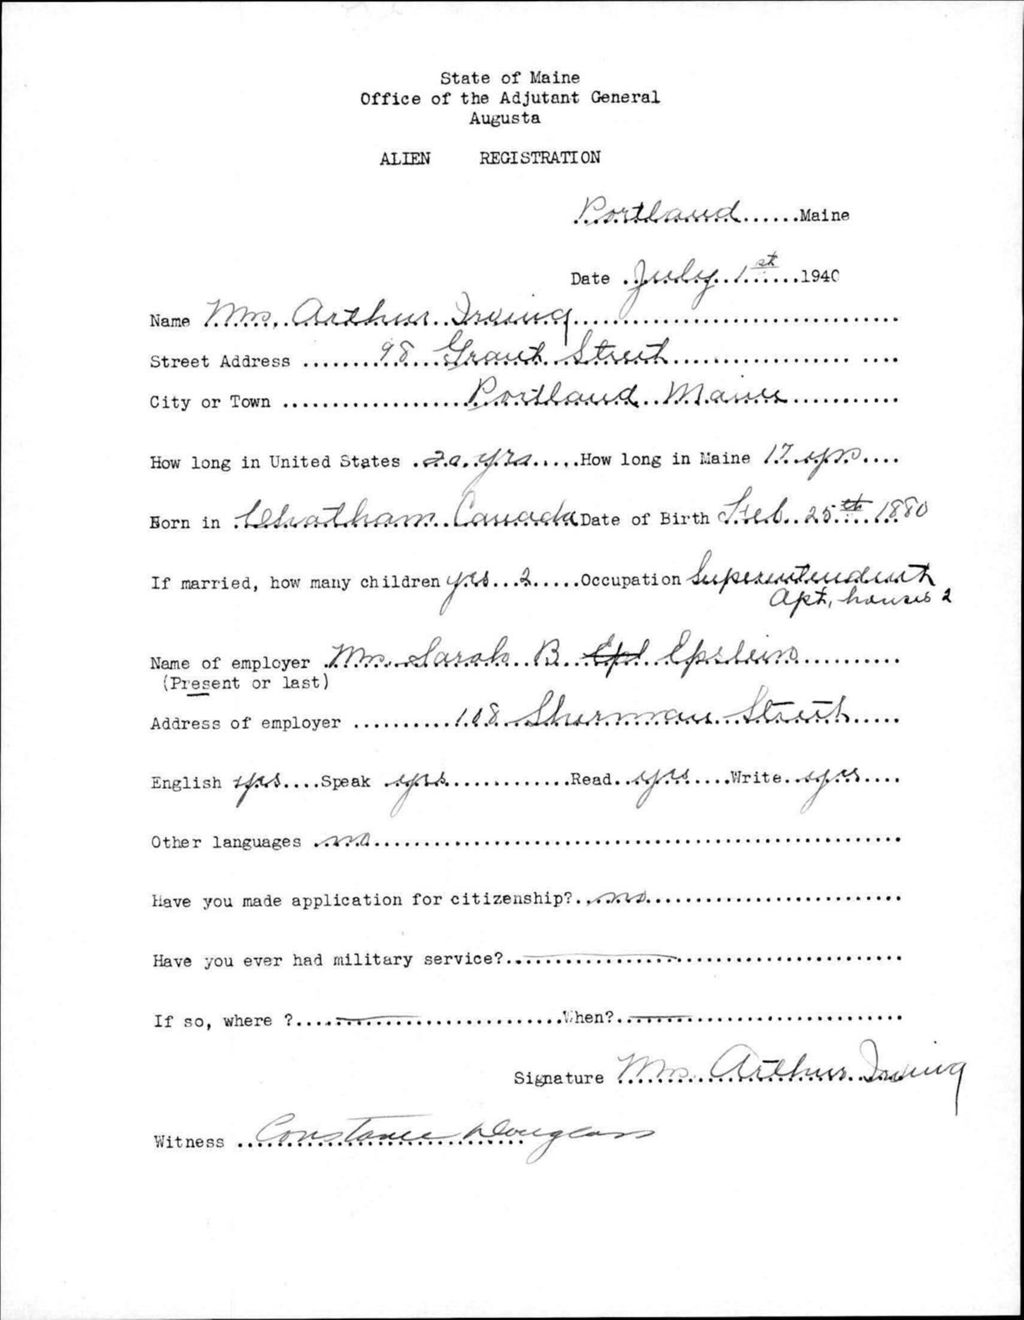 State of Maine
Office of the Adjutant General
Augusta
ALIEN REGISTRATION
Portland......Maine
Date .July 1st.....1940
Name Mrs. Arthur Irving................................
Street Address ........98 Grant Street.................. ....
City or Town ..................Portland..Maine...........
How long in United States .20.yrs.....How long in Maine 17.yrs....
Born in .Chatham Canada Date of Birth Feb. 25th 1880
If married, how many children yes...2.....Occupation Superintendent
Apt, houses 2
Name of employer Mrs. Sarah B Epl Epstein..........
(Present or last)
Address of employer ..........108 Sherman Street.....
English yes....Speak .yes............Read..yes....Write..yes....
Other languages .no.....................................................
Have you made application for citizenship?..no.........................
Have you ever had military service?........................................
If so, where ?...........................When?.............................
Signature Mrs. Arthur Irving
Witness ..Constance Douglass